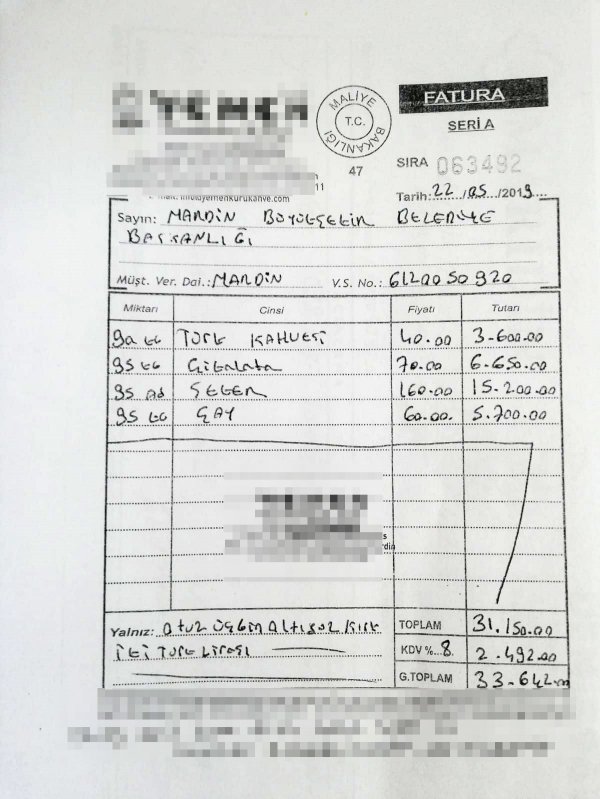 YEMEN
MALİYE BAKANLIĞI
T.C.
47
FATURA
SERİ A
SIRA 063492
11
yemenkurukahve.com
Tarih: 22/05/2019
Sayın: MARDİN BÜYÜKŞEHİR BELEDİYE
BAŞKANLIĞI
Müşt. Ver. Dai.: MARDİN V.S. No.: 6120050920
Miktarı Cinsi Fiyatı Tutarı
90 KG TÜRK KAHVESİ 40.00 3-600.00
95 KG Çikolata 70.00 6.650.00
95 Ad ŞEKER 160.00 15.200.00
95 KG ÇAY 60.00. 5.700.00
Yalnız: otuz üçbin Altıyüz kırk
iki TÜRK LİRASI
TOPLAM 31.150.00
KDV %.8. 2.492.00
G.TOPLAM 33.642.00